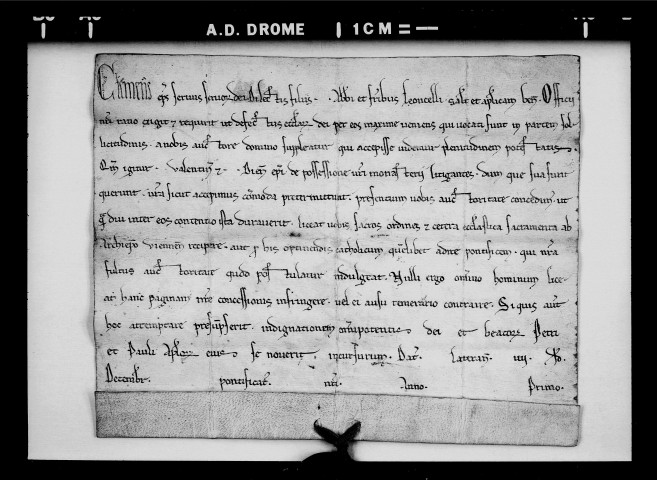 A.D. DROME 1CM
Clemens ep̄s seruus seruoꝝ dei. Dilect̄ tis filiis . . Abbi et fr̄ibus Leoncelli salt̄ et ap̄licam ben̄. Officii
nr̄i ratio exigit ⁊ requirit ut defect̄ tus eccl̄aꝝ dei per eos maxime ueniens qui uocati sunt in partem sol
licitudinis. a nobis auct̄ tore domino suppleatur qui accepisse uidemur plenitudinem potes̄ tatis.
Qm̄ igitur . Valentin̄ ⁊ . Dien̄ ep̄i de possessione ur̄i monas̄ terii litigantes. dum que sua sunt
querunt. ur̄a sicut accepimus cōmoda pretermittunt. presentium uobis auct̄ toritate concedim̄. ut
diu inter eos contentio ista durauerit. liceat uobis sacros ordines ⁊ cetera eccl̄astica sacramenta ab
Archiep̄o Viennen̄ recipere. aut pro his optinendis catholicum quēlibet adire pontificem. qui nr̄a
fultus auct̄ toritate quod pos̄ tulatur indulgeat. Nulli ergo om̄ino hominum lice
at hanc paginam nr̄e concessionis infringere. uel ei ausu temerario contraire. Si quis aut̄
hoc attemptare presūpserit. indignationem om̄ipotentis dei et beatoꝝ Petri
et Pauli Apl̄oꝝ eius se nouerit incursurum. Dat̄. Lateran̄. iiii. No.
Decembr̄. pontificat̄. nr̄i. Anno. Primo.